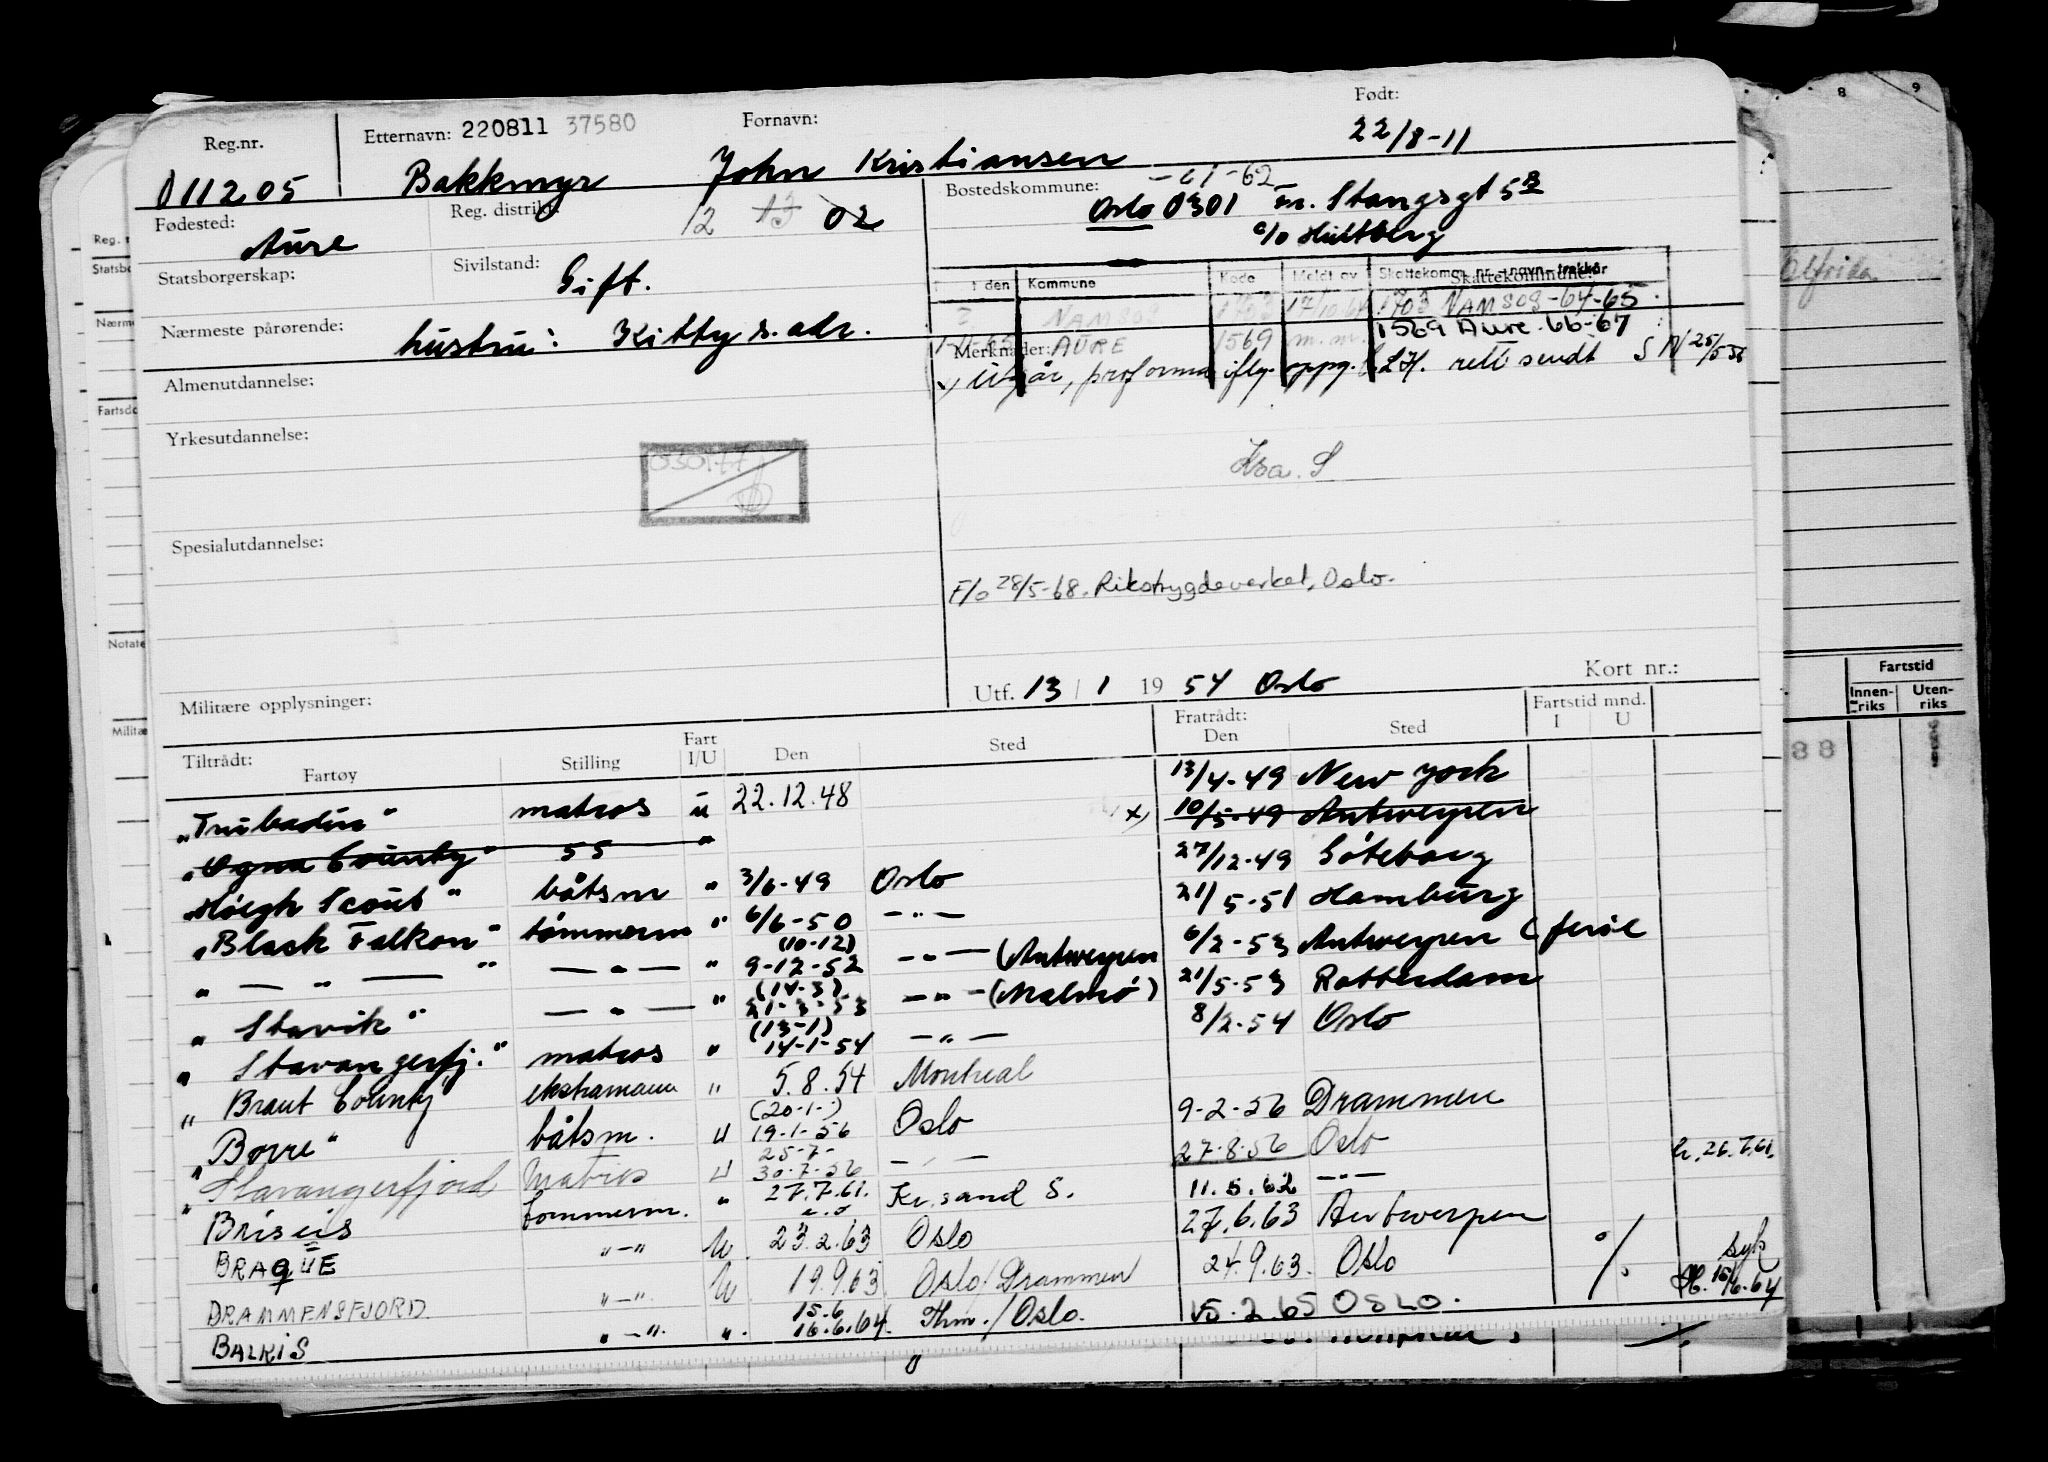 Reg.nr.
Etternavn: 220811 37580
Fornavn:
Født:
22/8-11
011205
Bakkmyr
John Kristiansen
Fødested:
Aure
Reg. distrikt:
12 13 02
Bostedskommune:
-61-62
Oslo 0301 m. Stangsgt 5B
c/o Hultberg
Statsborgerskap:
Sivilstand:
Gift.
den Kommune Kode Meldt av Skattekom. nr.-navn-trekkår
Skattekommune:
NAMSOS 1703 17/10 64 1703 NAMSOS-64-65
AURE 1569 m.m. 1569 Aure 66-67
Nærmeste pårørende:
hustru: Kitty s. adr.
Merknader:
x) Utgår, proforma iflg. oppg. L.H. rett sendt S N 25/5 56
Almenutdannelse:
Yrkesutdannelse:
030177
Spesialutdannelse:
F/o 28/5-68. Rikstrygdeverket, Oslo.
Militære opplysninger:
Utf. 13/1 19 54 Oslo
Kort nr.:
Tiltrådt:
Fartøy
Stilling
Fart
I/U
Den
Sted
Fratrådt:
Den
Sted
Fartstid mnd.
I U
"Trubadur" matros u 22.12.48 13/4-49 New York
"Ogna County" 55 " x) 10/5-49 Antwerpen
"Höegh Scout" båtsm " 3/6-49 Oslo 27/12-49 Göteborg
"Black Falkon" tömmerm " 6/6-50 -"- 21/5-51 Hamburg
" — " — " -"- " (10-12) 9-12-52 -"- (Antwerpen 6/2-53 Antwerpen (ferie
" Stavik" -"- " (14-3) 21-3-53 -"- (Malmö) 21/5-53 Rotterdam
" Stavangerfj." matros " (13-1) 14-1-54 -"- 8/2-54 Oslo
" Brant County ekstramann " 5.8.54 Montreal
"Borre" båtsm. u (20-1-) 19-1-56 Oslo 9-2-56 Drammen
" Stavangerfjord Matros u 25-7- 30-7-56 -"- 27.8.56 Oslo
Briseis tommerm. " 27.7.61. Kr.sand S. 11.5.62 -"- 26.7.61.
BRAQUE "-" U 23.2.63 Oslo 27.6.63 Antwerpen
DRAMMENSFJORD "-" U 19.9.63 Oslo/Drammen 24.9.63. Oslo
BALKIS "-" ". 15.6 16.6.64. Thm./Oslo. 15.2.65 OSLO. syk
15/6.64
Reg.
Statsbo
Nærm
Fartsdo
Notate
Militæ
8 9
Alfrida
Fartstid
Innen-
riks
Uten-
riks
88